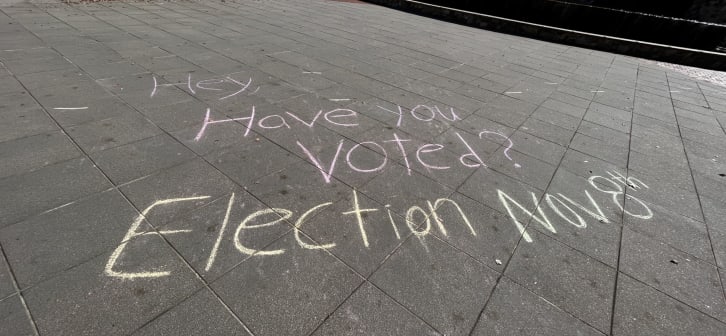 Hey,
Have you
voted?
Election Nov 8th